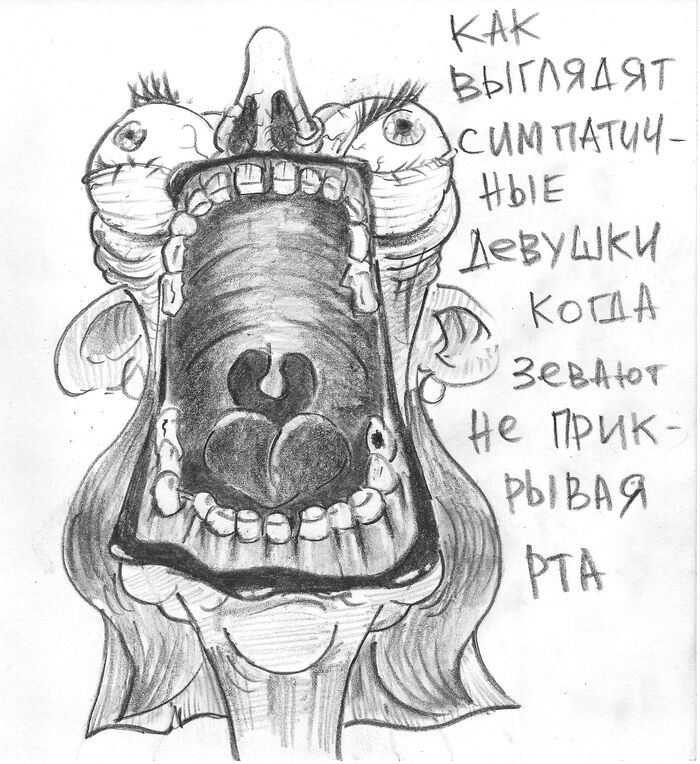 КАК
ВЫГЛЯДЯТ
СИМПАТИЧ-
НЫЕ
ДеВУШКИ
КОГДА
ЗеВАЮТ
Не ПРИК-
РЫВАЯ
РТА